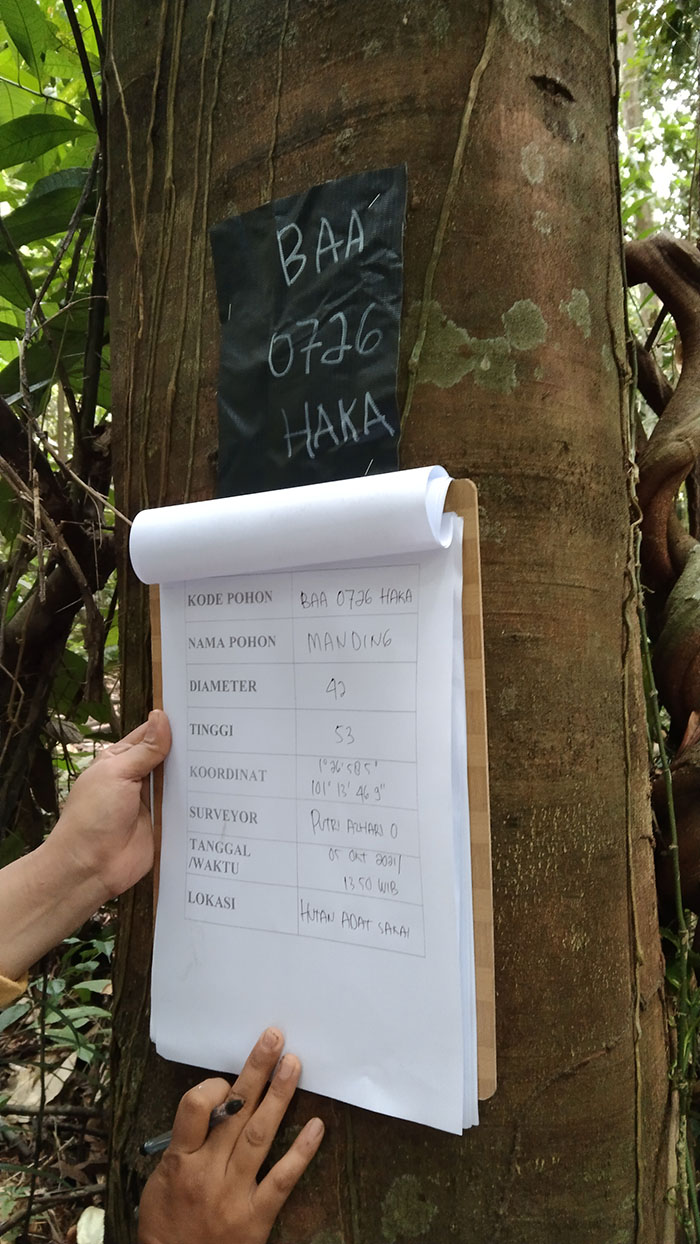 BAA
0726
HAKA
KODE POHON BAA 0726 HAKA
NAMA POHON MANDING
DIAMETER 42
TINGGI 53
KOORDINAT 1° 26' 58 5"
101° 13' 46 9"
SURVEYOR PUTRI AZHARI O
TANGGAL 05 OKT 2021/
/WAKTU 13 50 WIB
LOKASI HUTAN ADAT SAKAI